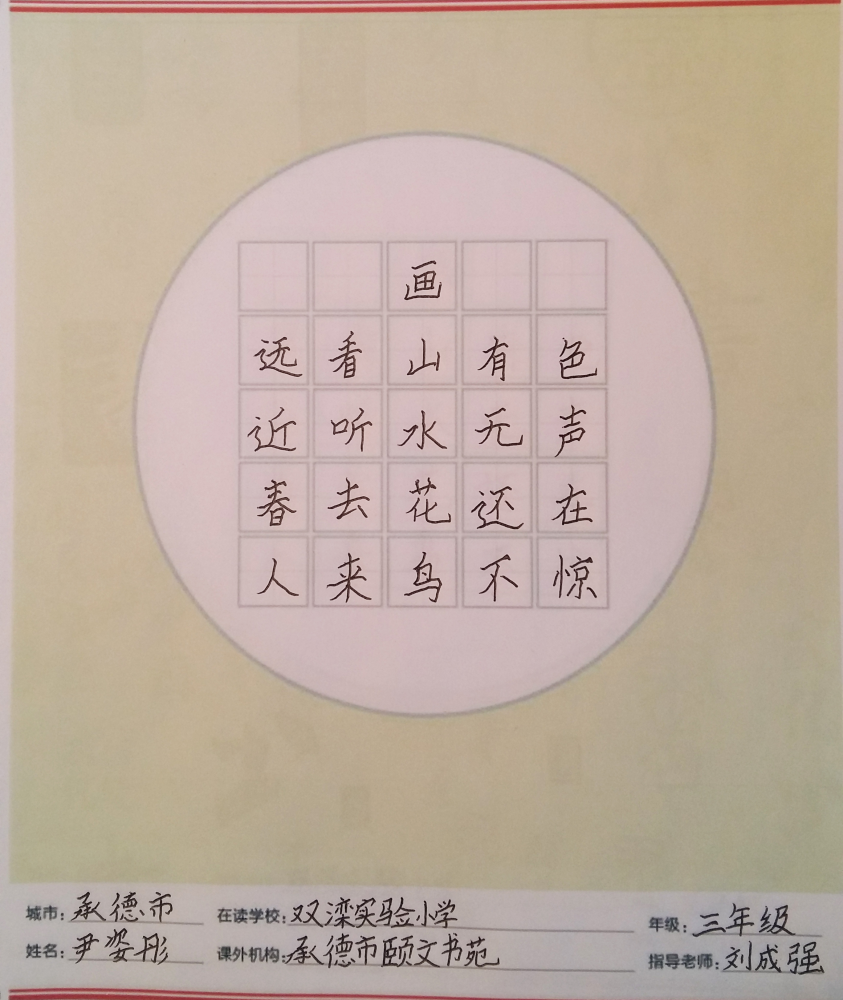 画
远看山有色
近听水无声
春去花还在
人来鸟不惊
城市：承德市 在读学校：双滦实验小学 年级：三年级
姓名：尹姿彤 课外机构：承德市颐文书苑 指导老师：刘成强